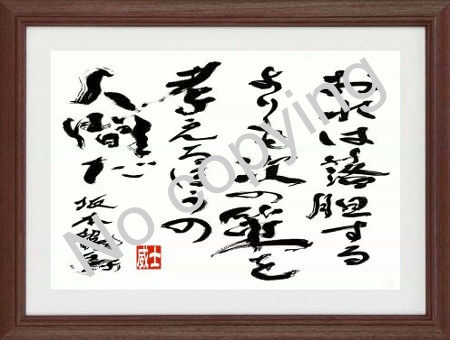 われは落胆する
よりも次の策を
考えるほうの
人間だ
坂本龍馬
士威
No copying